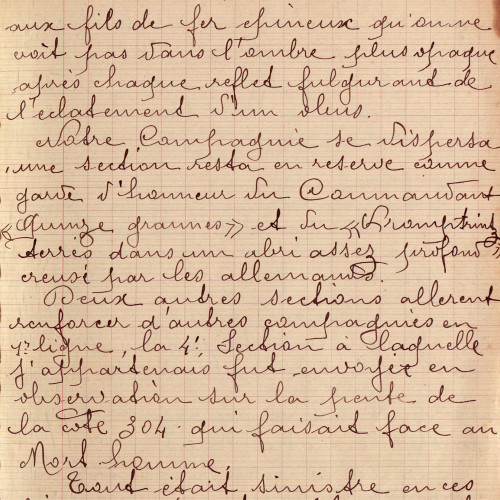 aux fils de fer épineux qu'on ne
voit pas dans l'ombre plus opaque
après chaque reflet fulgurant de
l'éclatement d'un obus.
Notre Compagnie se dispersa
, une section resta en réserve comme
garde d'honneur du Commandant
« Quinze grammes » et du « Kromptrinz »
terrés dans un abri assez profond
creusé par les allemands.
Deux autres sections allèrent
renforcer d'autres compagnies en
1re ligne, la 4e Section à laquelle
j'appartenais fut envoyée en
observation sur la pente de
la côte 304 qui faisait face au
Mort homme.
Tout était sinistre en ces